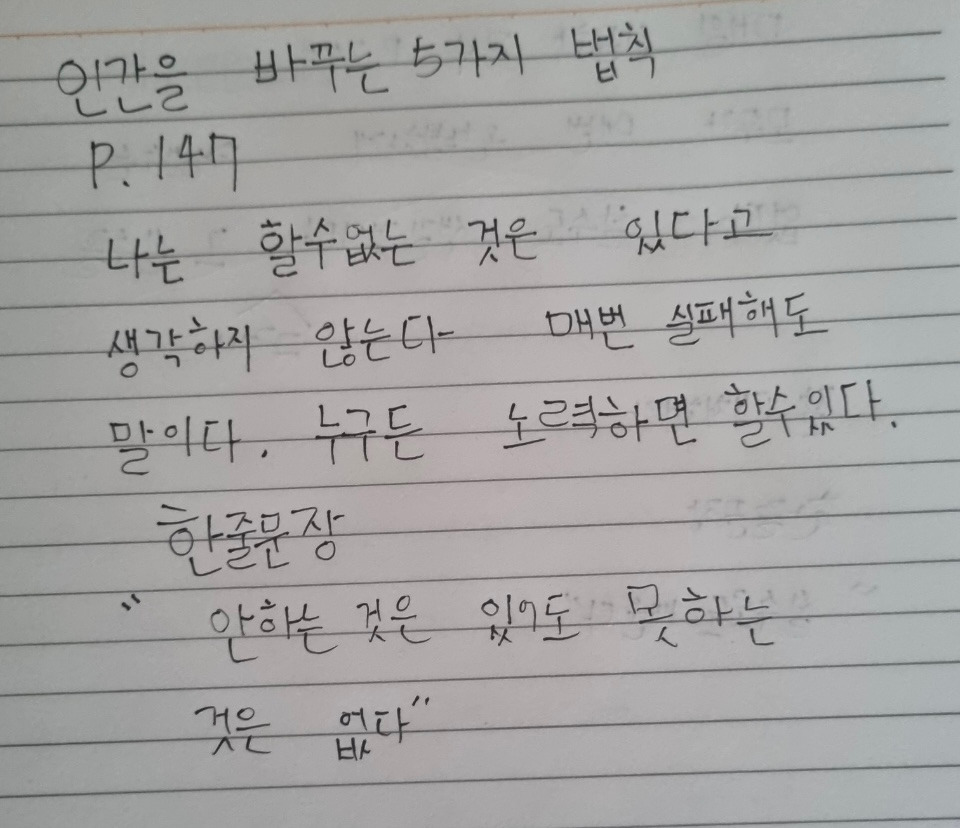 인간을 바꾸는 5가지 법칙
P. 147
나는 할수없는 것은 있다고
생각하지 않는다 매번 실패해도
말이다. 누구든 노력하면 할수있다.
한줄문장
" 안하는 것은 있어도 못하는
것은 없다"